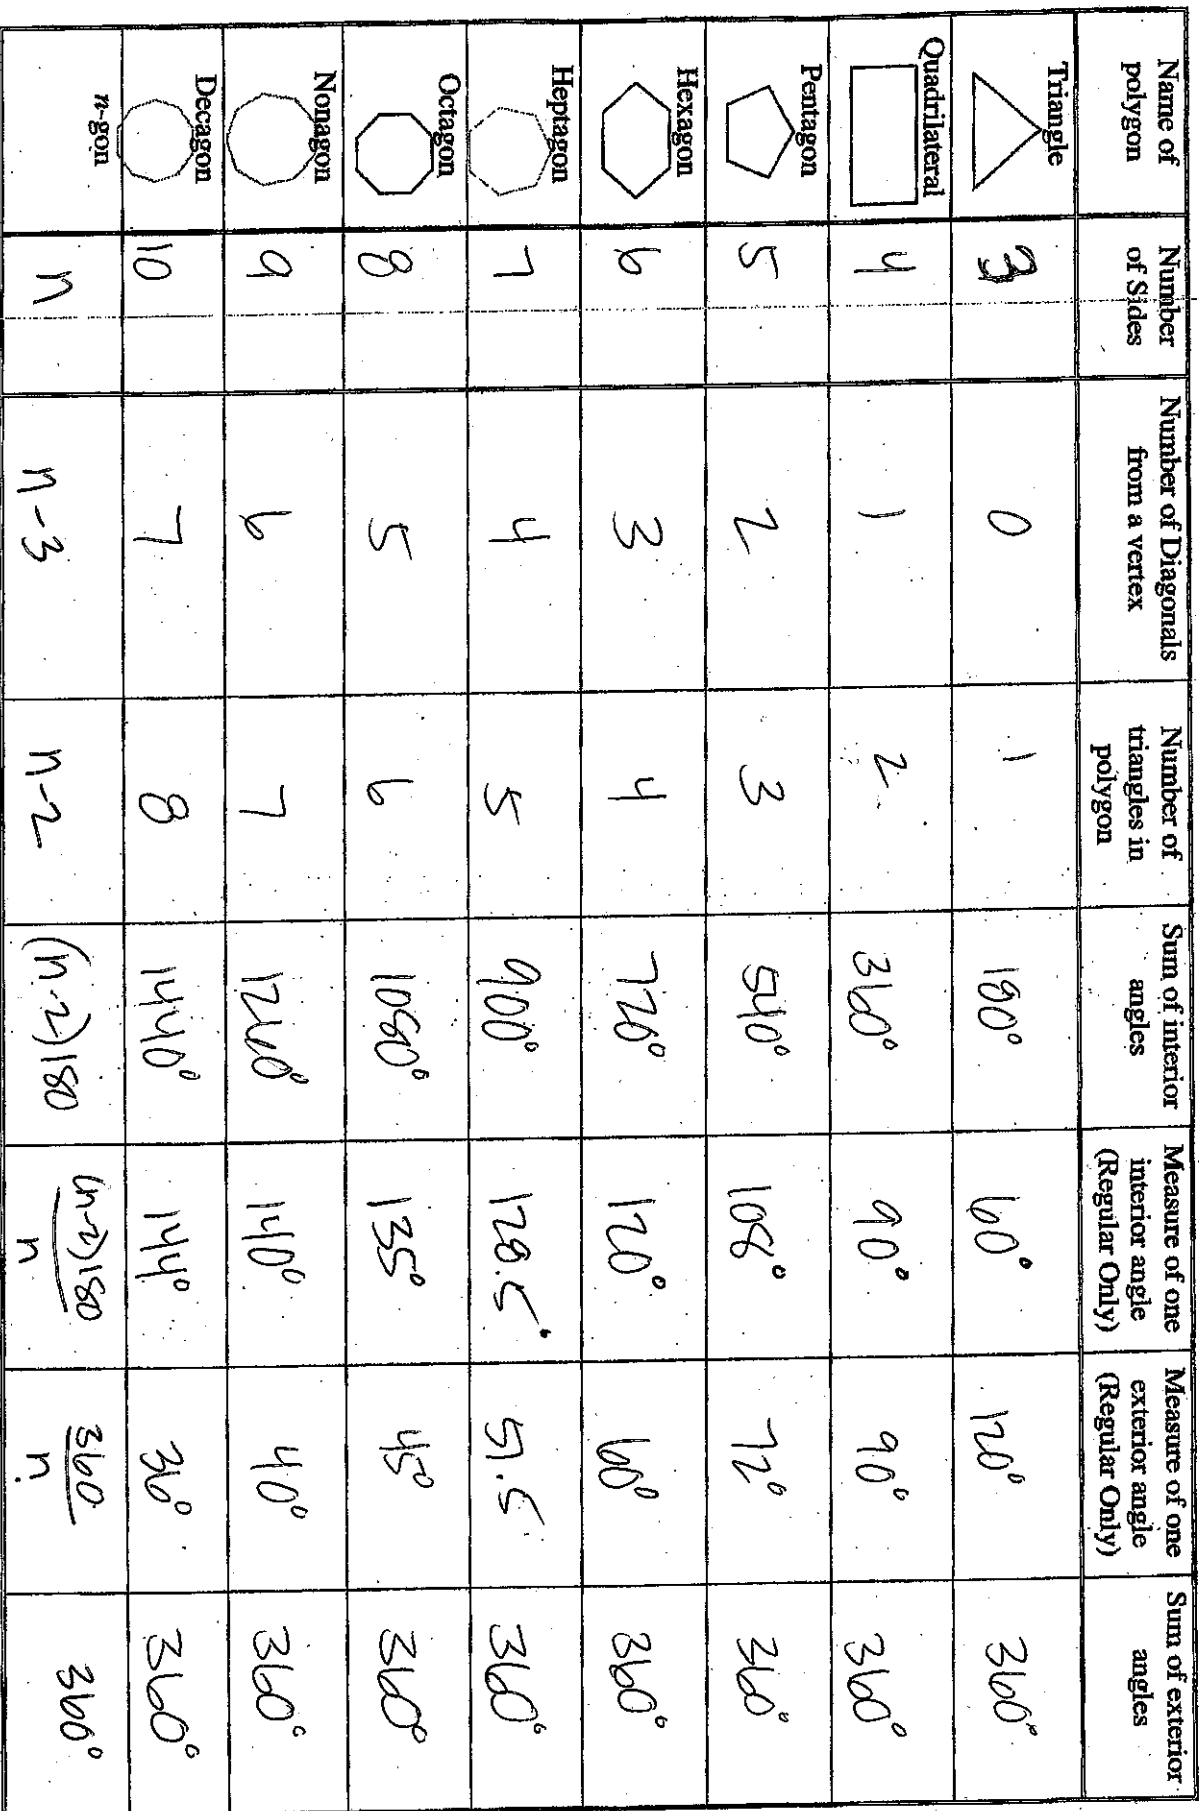 Name of polygon | Number of Sides | Number of Diagonals from a vertex | Number of triangles in polygon | Sum of interior angles | Measure of one interior angle (Regular Only) | Measure of one exterior angle (Regular Only) | Sum of exterior angles
Triangle | 3 | 0 | 1 | 180° | 60° | 120° | 360°
Quadrilateral | 4 | 1 | 2 | 360° | 90° | 90° | 360°
Pentagon | 5 | 2 | 3 | 540° | 108° | 72° | 360°
Hexagon | 6 | 3 | 4 | 720° | 120° | 60° | 360°
Heptagon | 7 | 4 | 5 | 900° | 128.5° | 51.5 | 360°
Octagon | 8 | 5 | 6 | 1080° | 135° | 45° | 360°
Nonagon | 9 | 6 | 7 | 1260° | 140° | 40° | 360°
Decagon | 10 | 7 | 8 | 1440° | 144° | 36° | 360°
n-gon | n | n-3 | n-2 | (n-2)180 | (n-2)180/n | 360/n | 360°